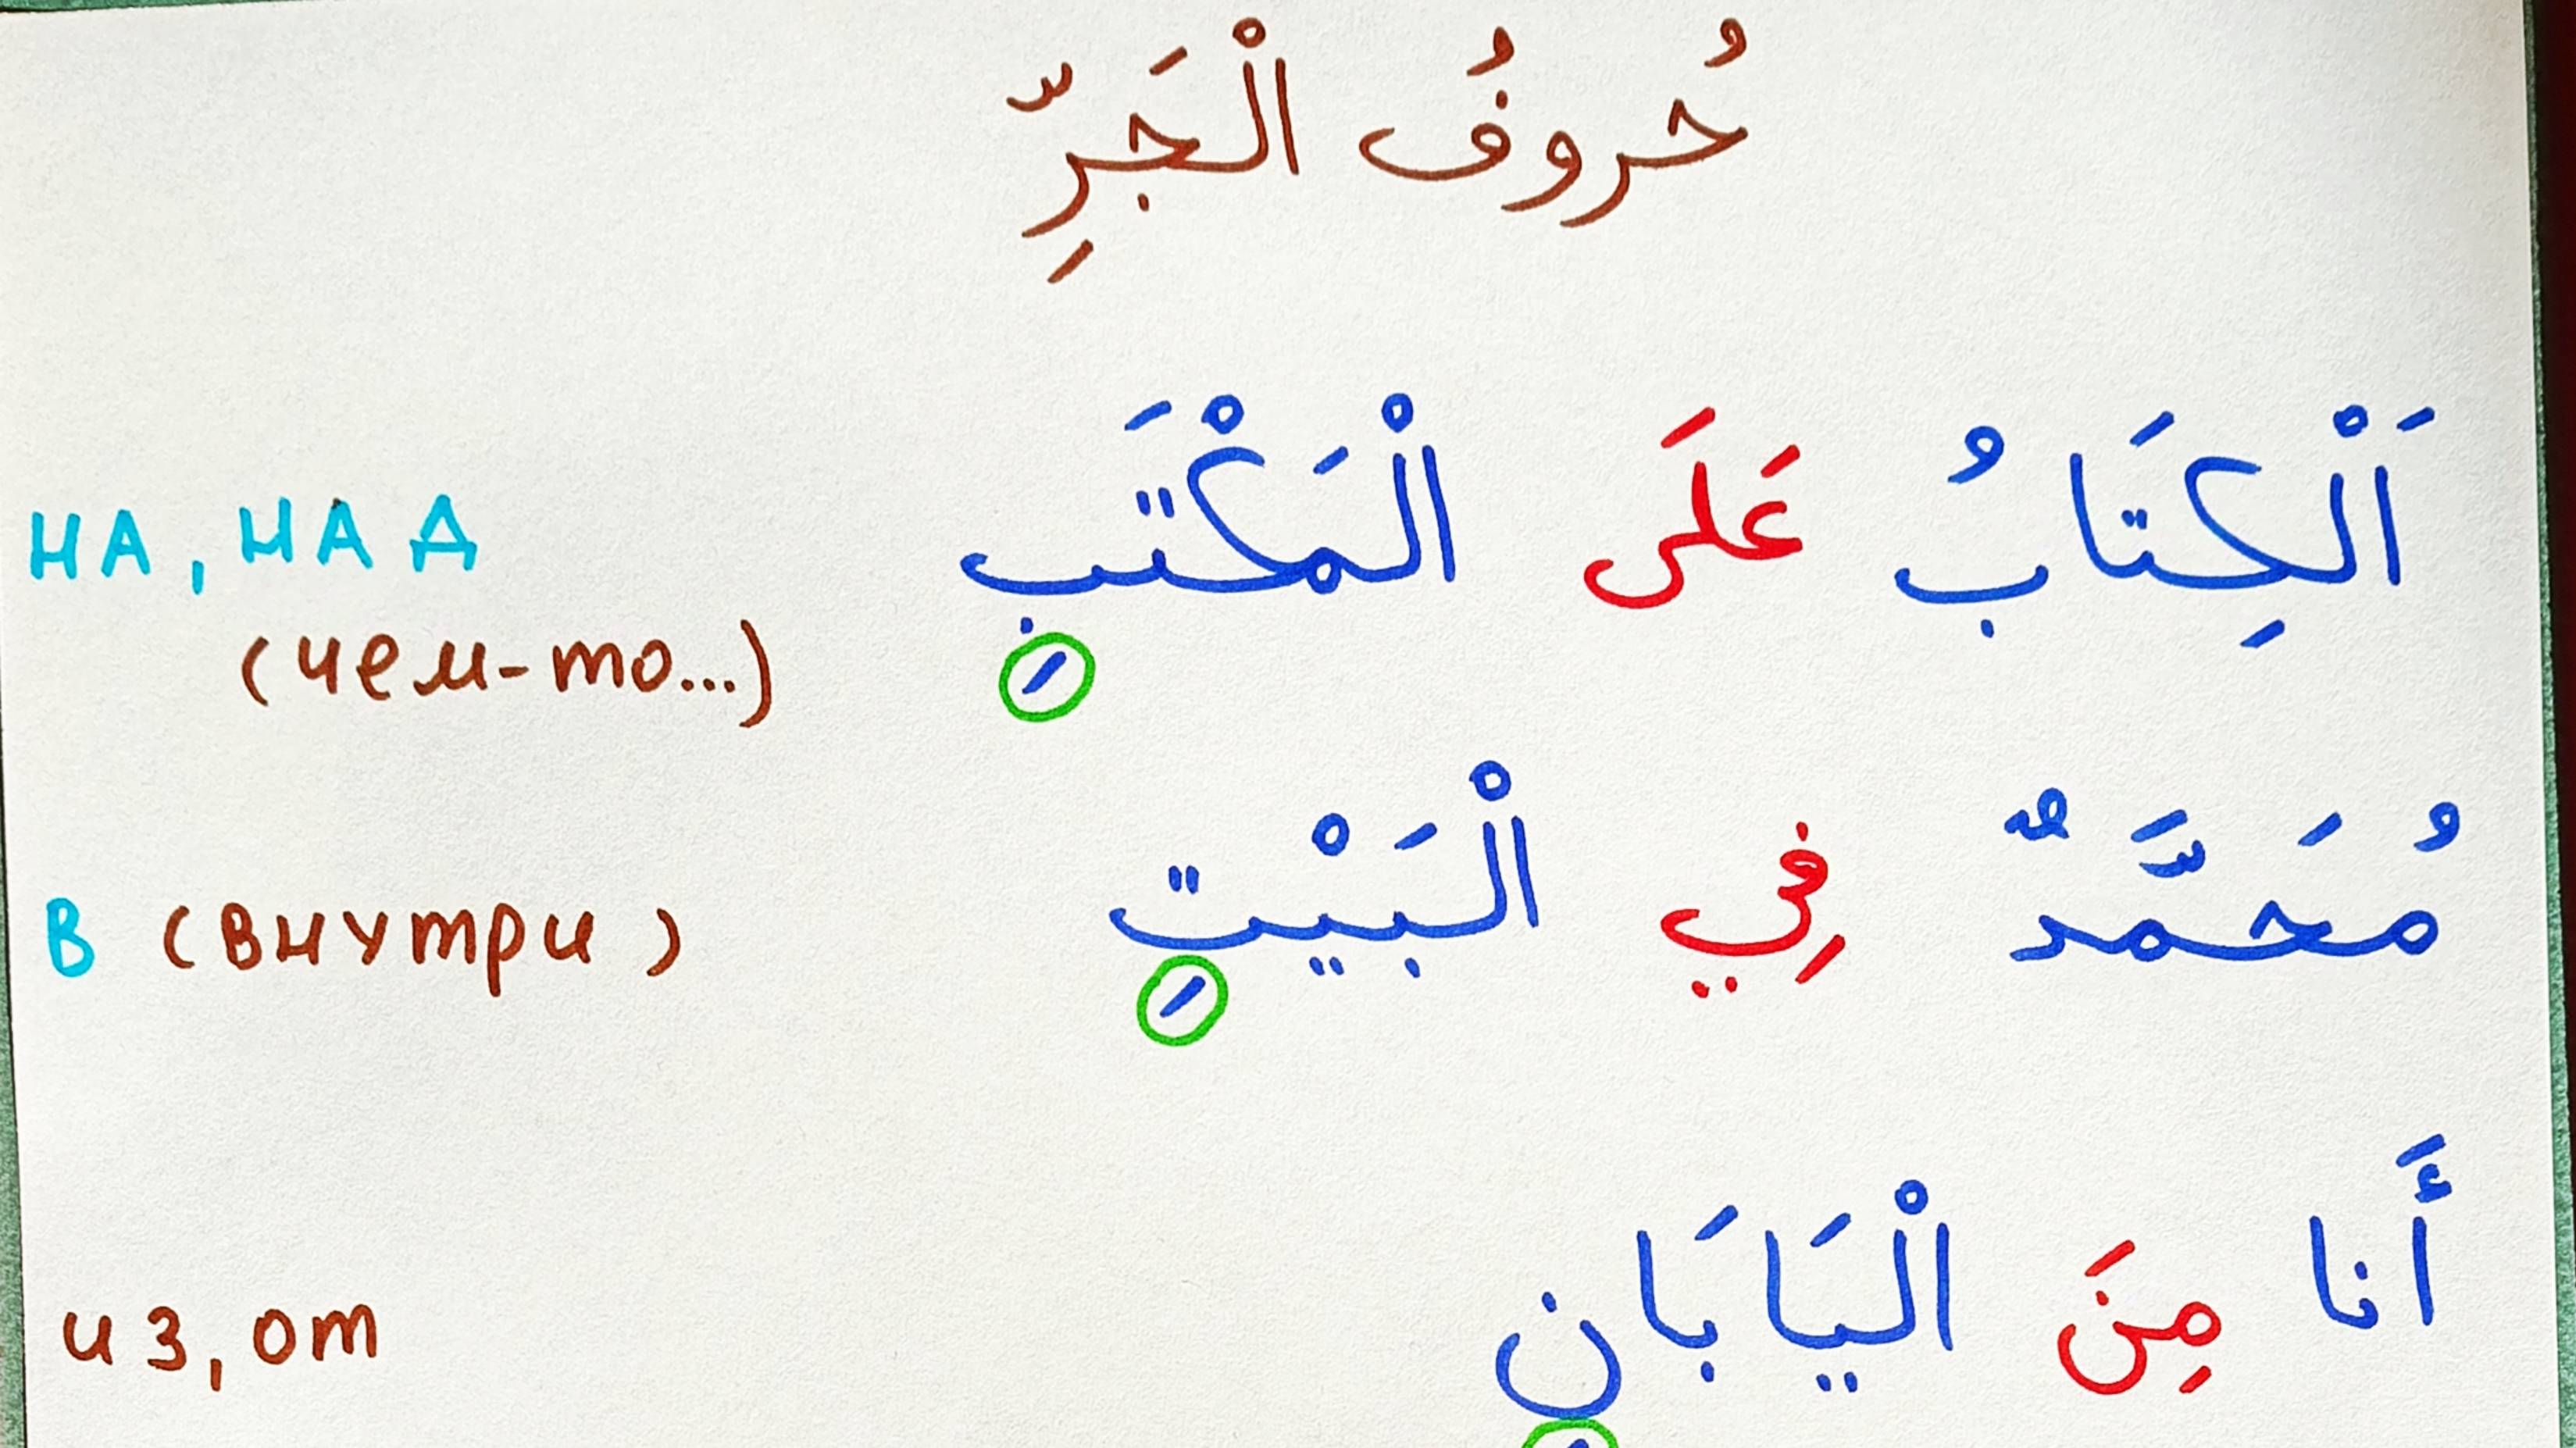 حُروفُ الْجَرِّ
اَلْكِتَابُ عَلَى الْمَكْتَبِ
НА, НАД
(чем-то...)
مُحَمَّدٌ فِي الْبَيْتِ
В (внутри)
أَنا مِنَ الْيَابَانِ
из, от